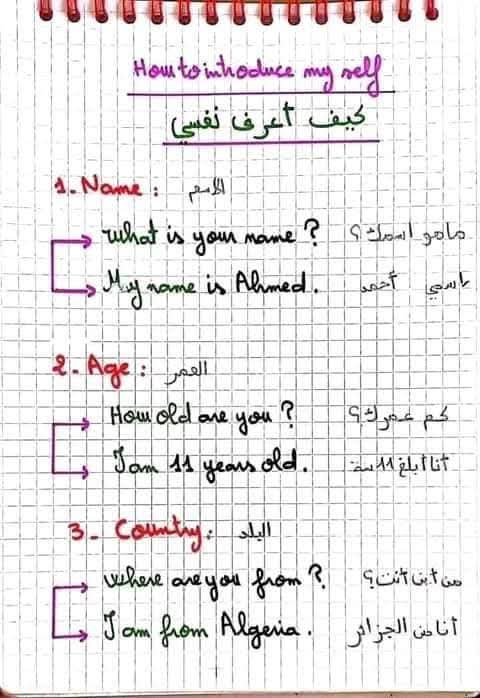 How to introduce my self
كيف أعرف نفسي
1. Name : الاسم
What is your name ? ما هو اسمك ؟
My name is Ahmed. اسمي أحمد
2. Age : العمر
How old are you ? كم عمرك ؟
I am 11 years old. أنا أبلغ 11 سنة
3 - Country : البلد
Where are you from ? من أين أنت ؟
I am from Algeria. أنا من الجزائر